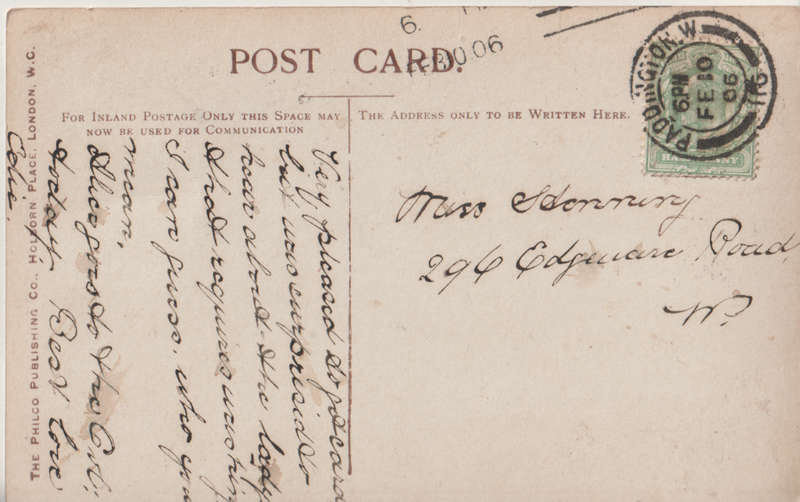 POST CARD.
FOR INLAND POSTAGE ONLY THIS SPACE MAY
NOW BE USED FOR COMMUNICATION
THE ADDRESS ONLY TO BE WRITTEN HERE.
PADDINGTON. W.
6. PM
FE 10
06
116
6.
FE 10 06
Miss Henning
296 Edgeware Road
W.
Very pleased to get card
but was surprised to
hear about the lady
that requires washing
I can guess who you
mean,
Alice goes to the
today, Best love
THE PHILCO PUBLISHING CO., HOLBORN PLACE, LONDON, W.C.